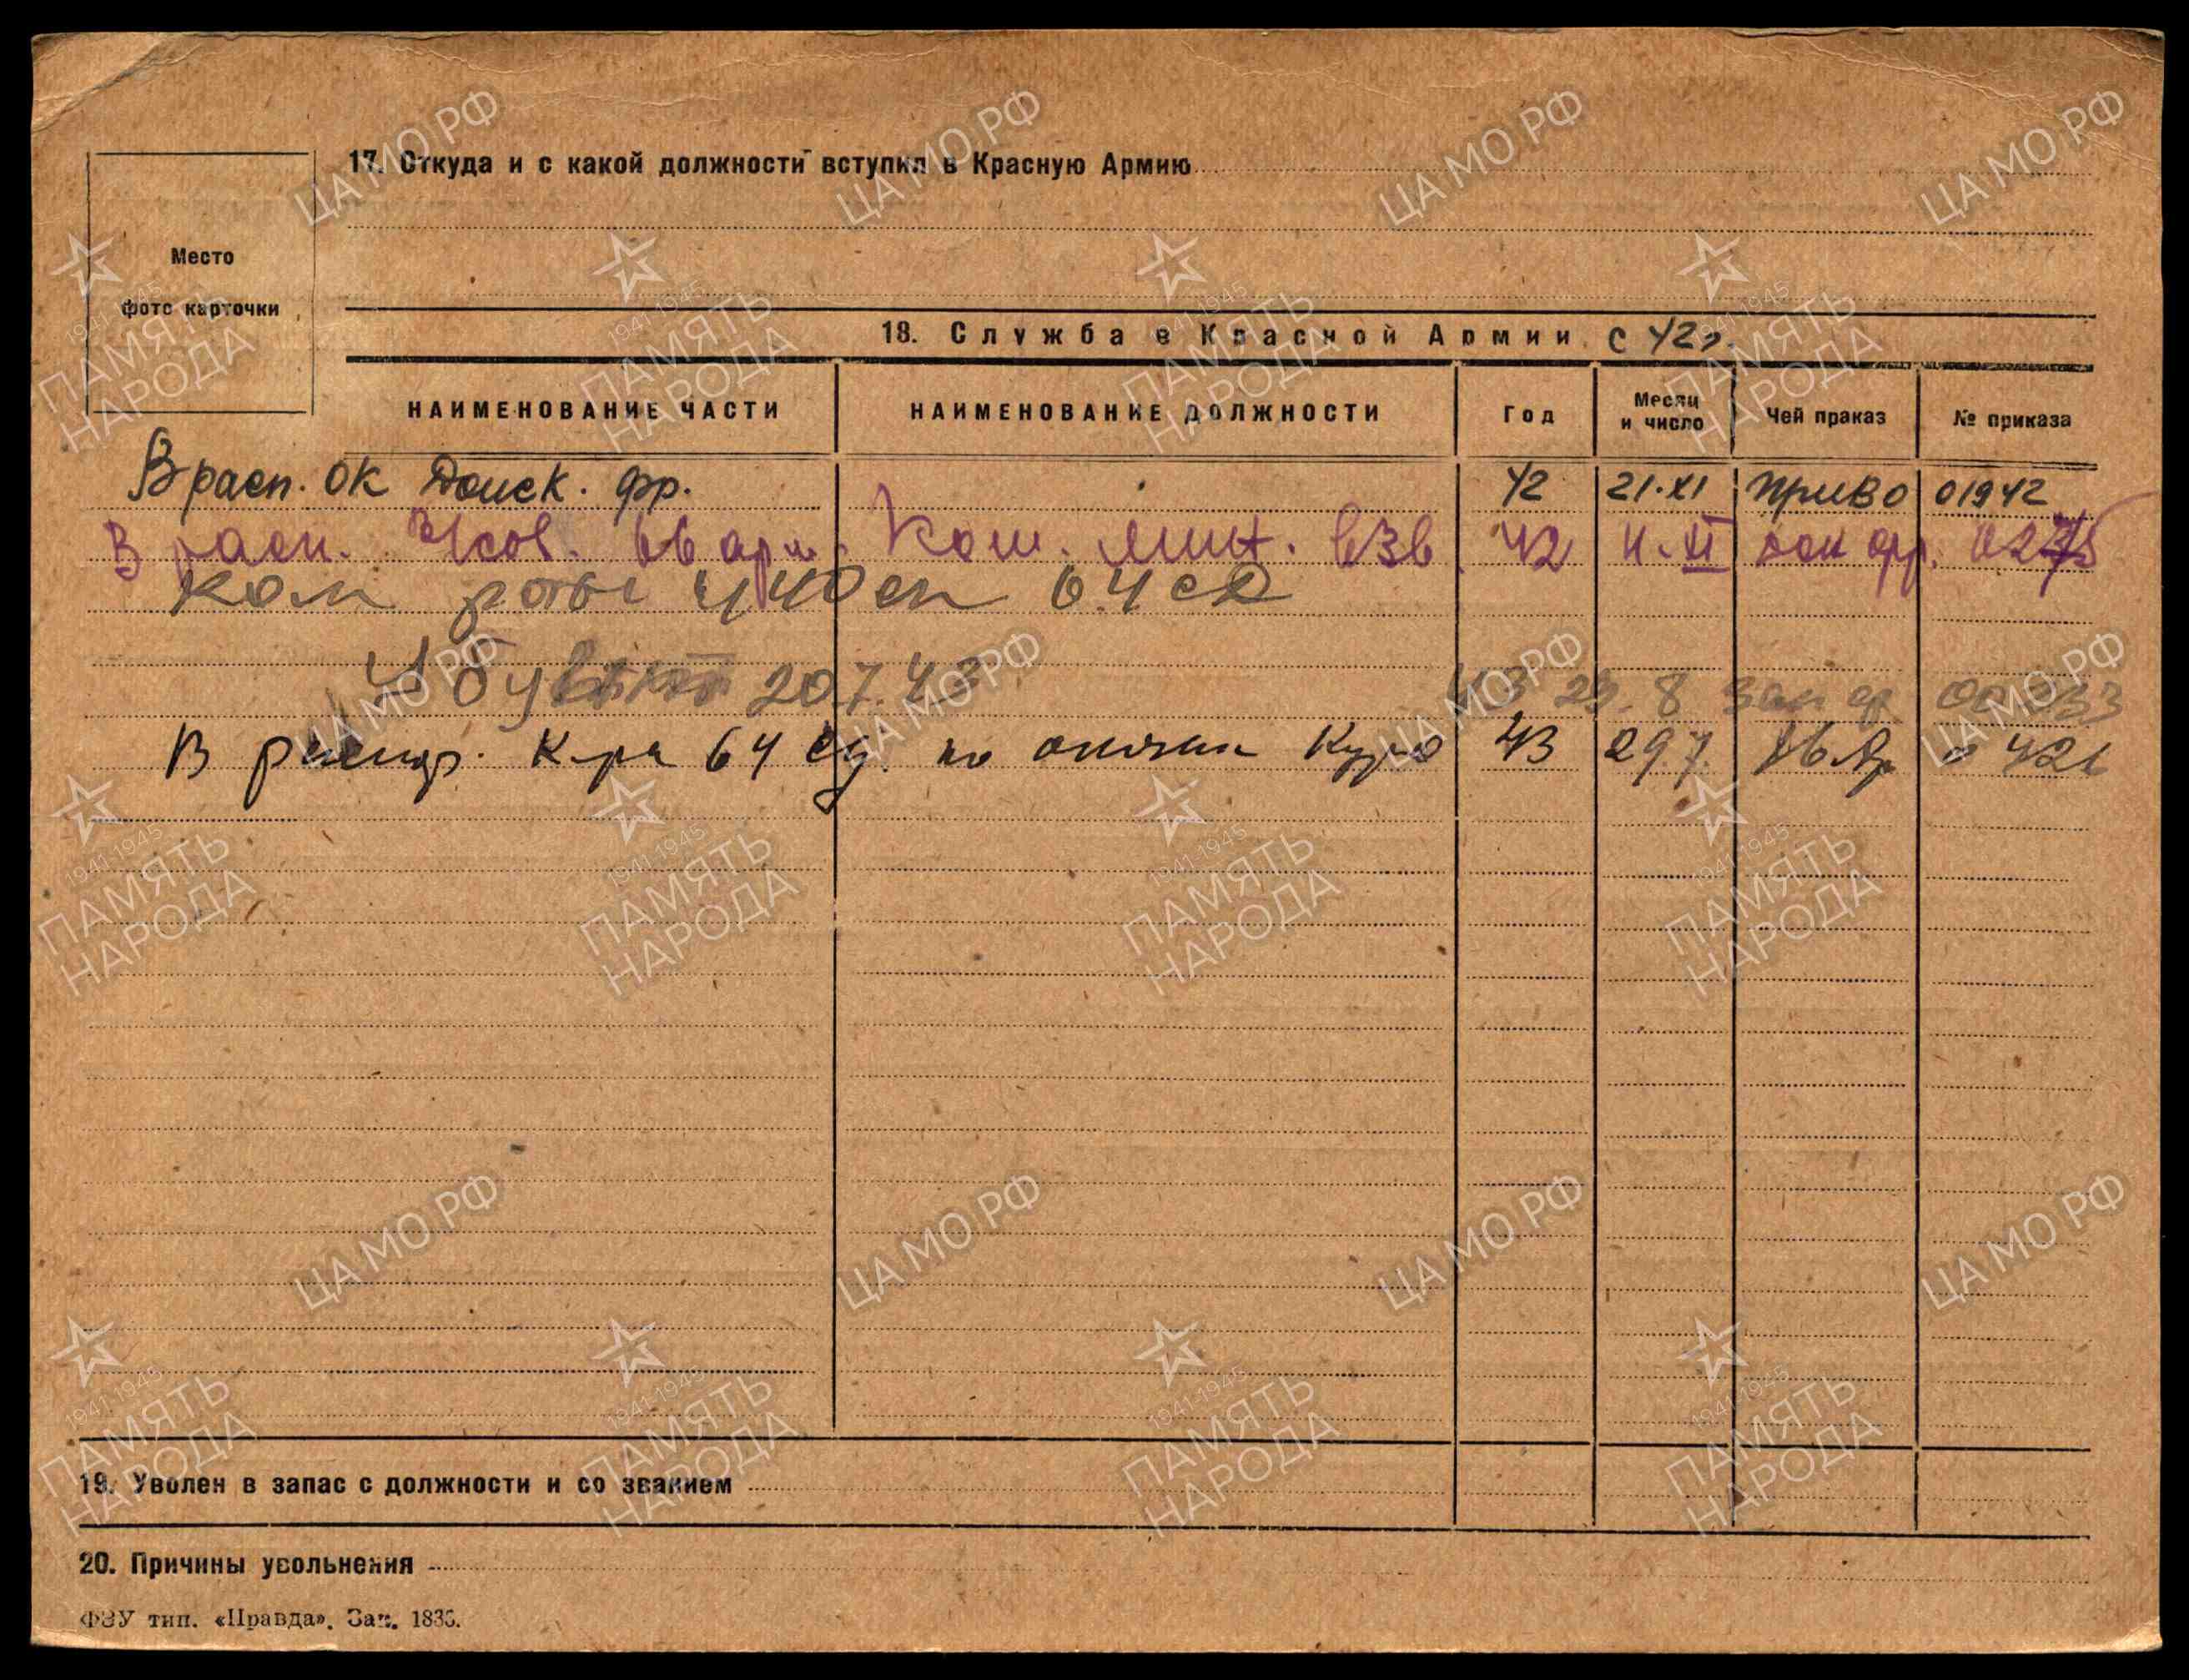 17. Откуда и с какой должности вступил в Красную Армию
Место
фото карточки
18. Служба в Красной Армии с 42 г.
НАИМЕНОВАНИЕ ЧАСТИ НАИМЕНОВАНИЕ ДОЛЖНОСТИ Год Месяц и число Чей праказ № приказа
В расп. ОК Донск. фр. 42 21.XI ПриВО 01942
В расп. 66 арм. Ком. мин. взв. 42 XI Дон фр.
Ком роты 440 сп 64 сд
Убит 20.7.43 43 23.8 Зап ф
В распор. К-ра 64 сд. по 43 29.7.
19. Уволен в запас с должности и со званием
20. Причины увольнения
ФЗУ тип. «Правда». Зак.
ЦА МО РФ
1941-1945
ПАМЯТЬ
НАРОДА